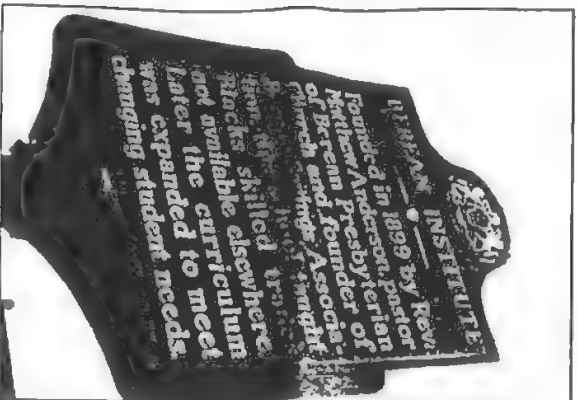 BEREAN INSTITUTE
Founded in 1899 by Rev.
Matthew Anderson, pastor
of Berean Presbyterian
Church and founder of
Associa-
taught
Blacks skilled
not available elsewhere
Later the curriculum
was expanded to meet
changing student needs